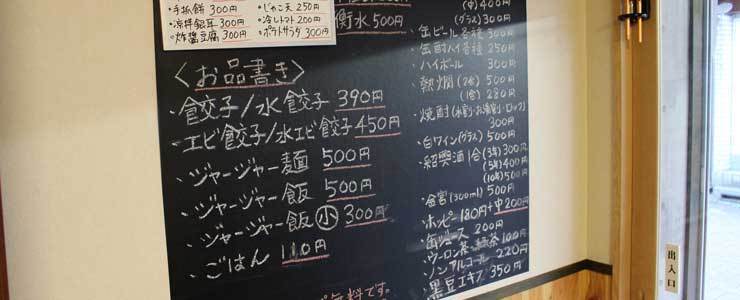 ・手抓餅 300円
・涼拌銀耳 300円
・炸醬豆腐 300円
・じゃこ天 250円
・冷しトマト 200円
・ポテトサラダ 300円
衡水 500円
〈お品書き〉
・餃子/水餃子 390円
・エビ餃子/水エビ餃子 450円
・ジャージャー麺 500円
・ジャージャー飯 500円
・ジャージャー飯 小 300円
・ごはん 110円
無料です。
(中)400円
(グラス)300円
・缶ビール各種 300円
・缶酎ハイ各種 250円
・ハイボール 300円
・熱燗(2合)500円
(1合)280円
・焼酎(水割・お湯割・ロック)
300円
・白ワイン(グラス)500円
・紹興酒1合(3年)300円
(5年)400円
(10年)500円
(300ml)500円
・ホッピー180円+中200円
・缶ジュース 200円
・ウーロン茶・緑茶100円
・ノンアルコール 220円
・黒豆エキス 350円
出入口